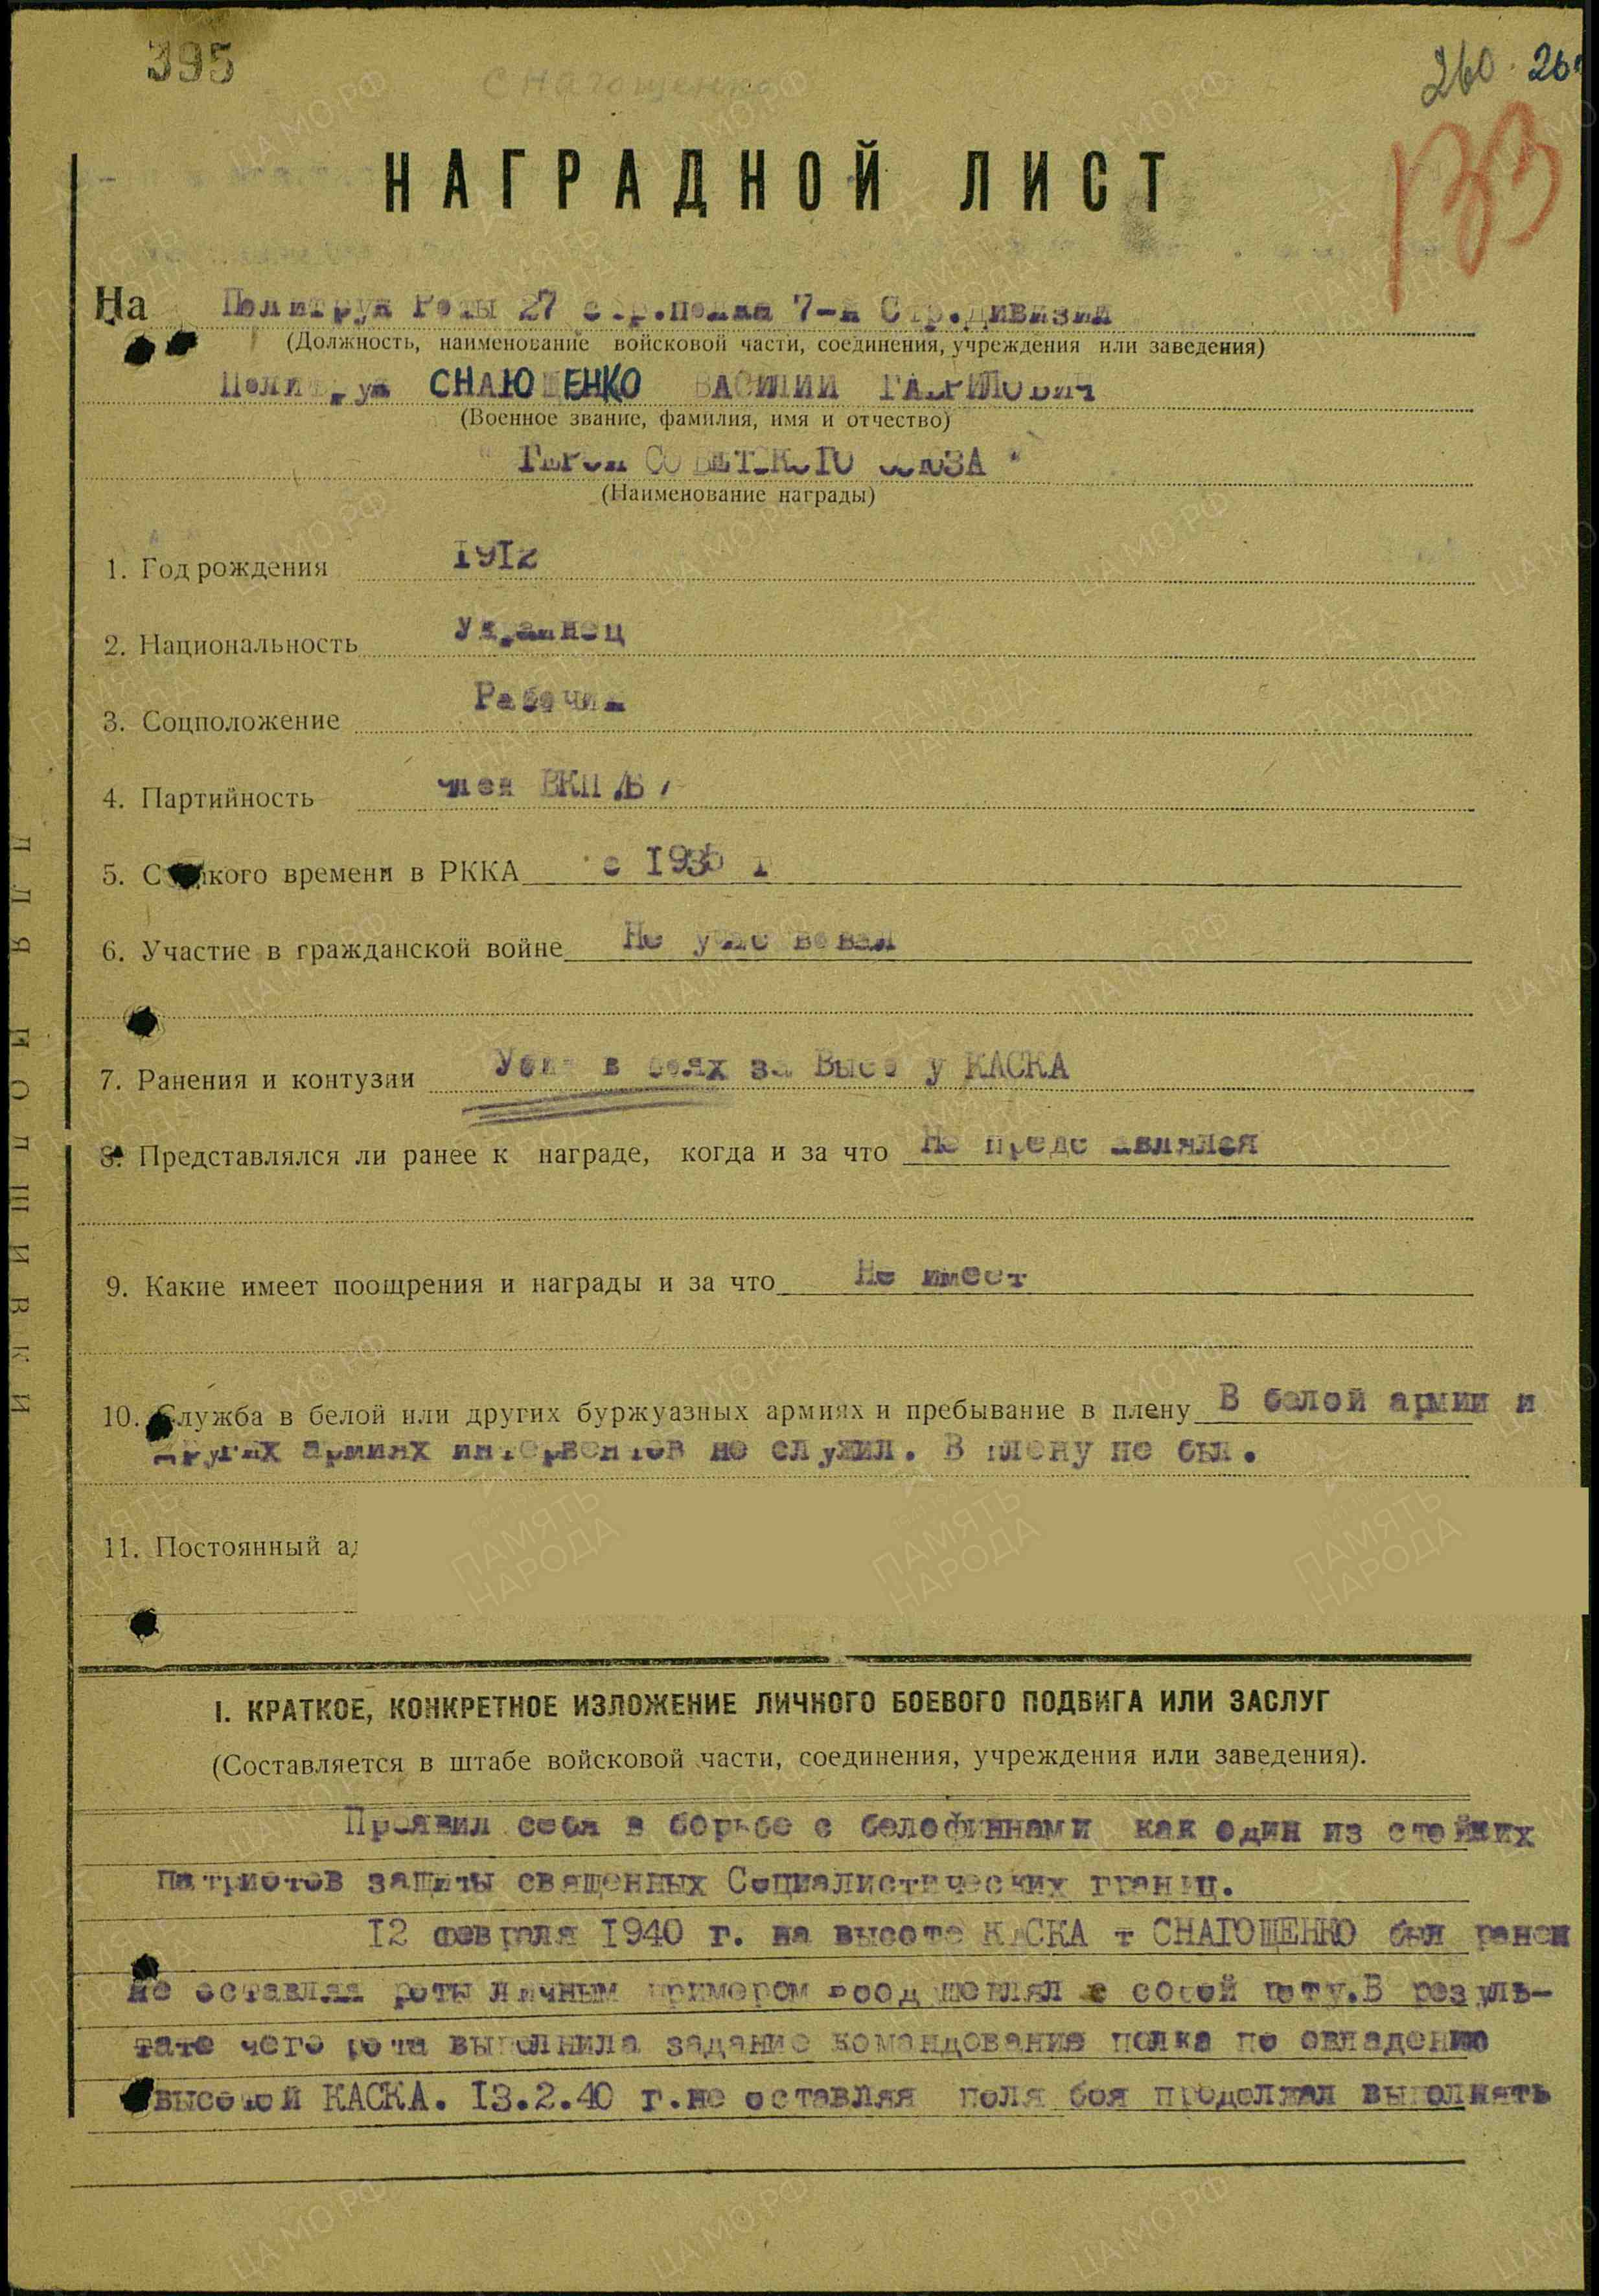 395
Снагощенко
260 26
133
НАГРАДНОЙ ЛИСТ
На Политрук Роты 27 стр.полка 7-й Стр.дивизии
(Должность, наименование войсковой части, соединения, учреждения или заведения)
Политрук СНАЮЩЕНКО ВАСИЛИЙ ГАВРИЛОВИЧ
(Военное звание, фамилия, имя и отчество)
" ГЕРОЙ СОВЕТСКОГО СОЮЗА "
(Наименование награды)
1. Год рождения 1912
2. Национальность Украинец
3. Соцположение Рабочий
4. Партийность член ВКП /Б/
5. С какого времени в РККА с 1935 г
6. Участие в гражданской войне Не участвовал
7. Ранения и контузии Убит в боях за Высоту КАСКА
8. Представлялся ли ранее к награде, когда и за что Не представлялся
9. Какие имеет поощрения и награды и за что Не имеет
10. Служба в белой или других буржуазных армиях и пребывание в плену В белой армии и
других армиях интервентов не служил. В плену не был.
11. Постоянный ад
I. КРАТКОЕ, КОНКРЕТНОЕ ИЗЛОЖЕНИЕ ЛИЧНОГО БОЕВОГО ПОДВИГА ИЛИ ЗАСЛУГ
(Составляется в штабе войсковой части, соединения, учреждения или заведения).
Проявил себя в борьбе с белофиннами как один из стойких
патриотов защиты священных Социалистических границ.
12 февраля 1940 г. на высоте КАСКА т СНАГОЩЕНКО был ранен
не оставляя роты личным примером воодушевлял с собой роту.В резуль-
тате чего рота выполнила задание командования полка по овладению
высотой КАСКА. 13.2.40 г.не оставляя поля боя продолжал выполнять
ДЛЯ ПОДШИВКИ
ПАМЯТЬ НАРОДА
ЦА МО.РФ